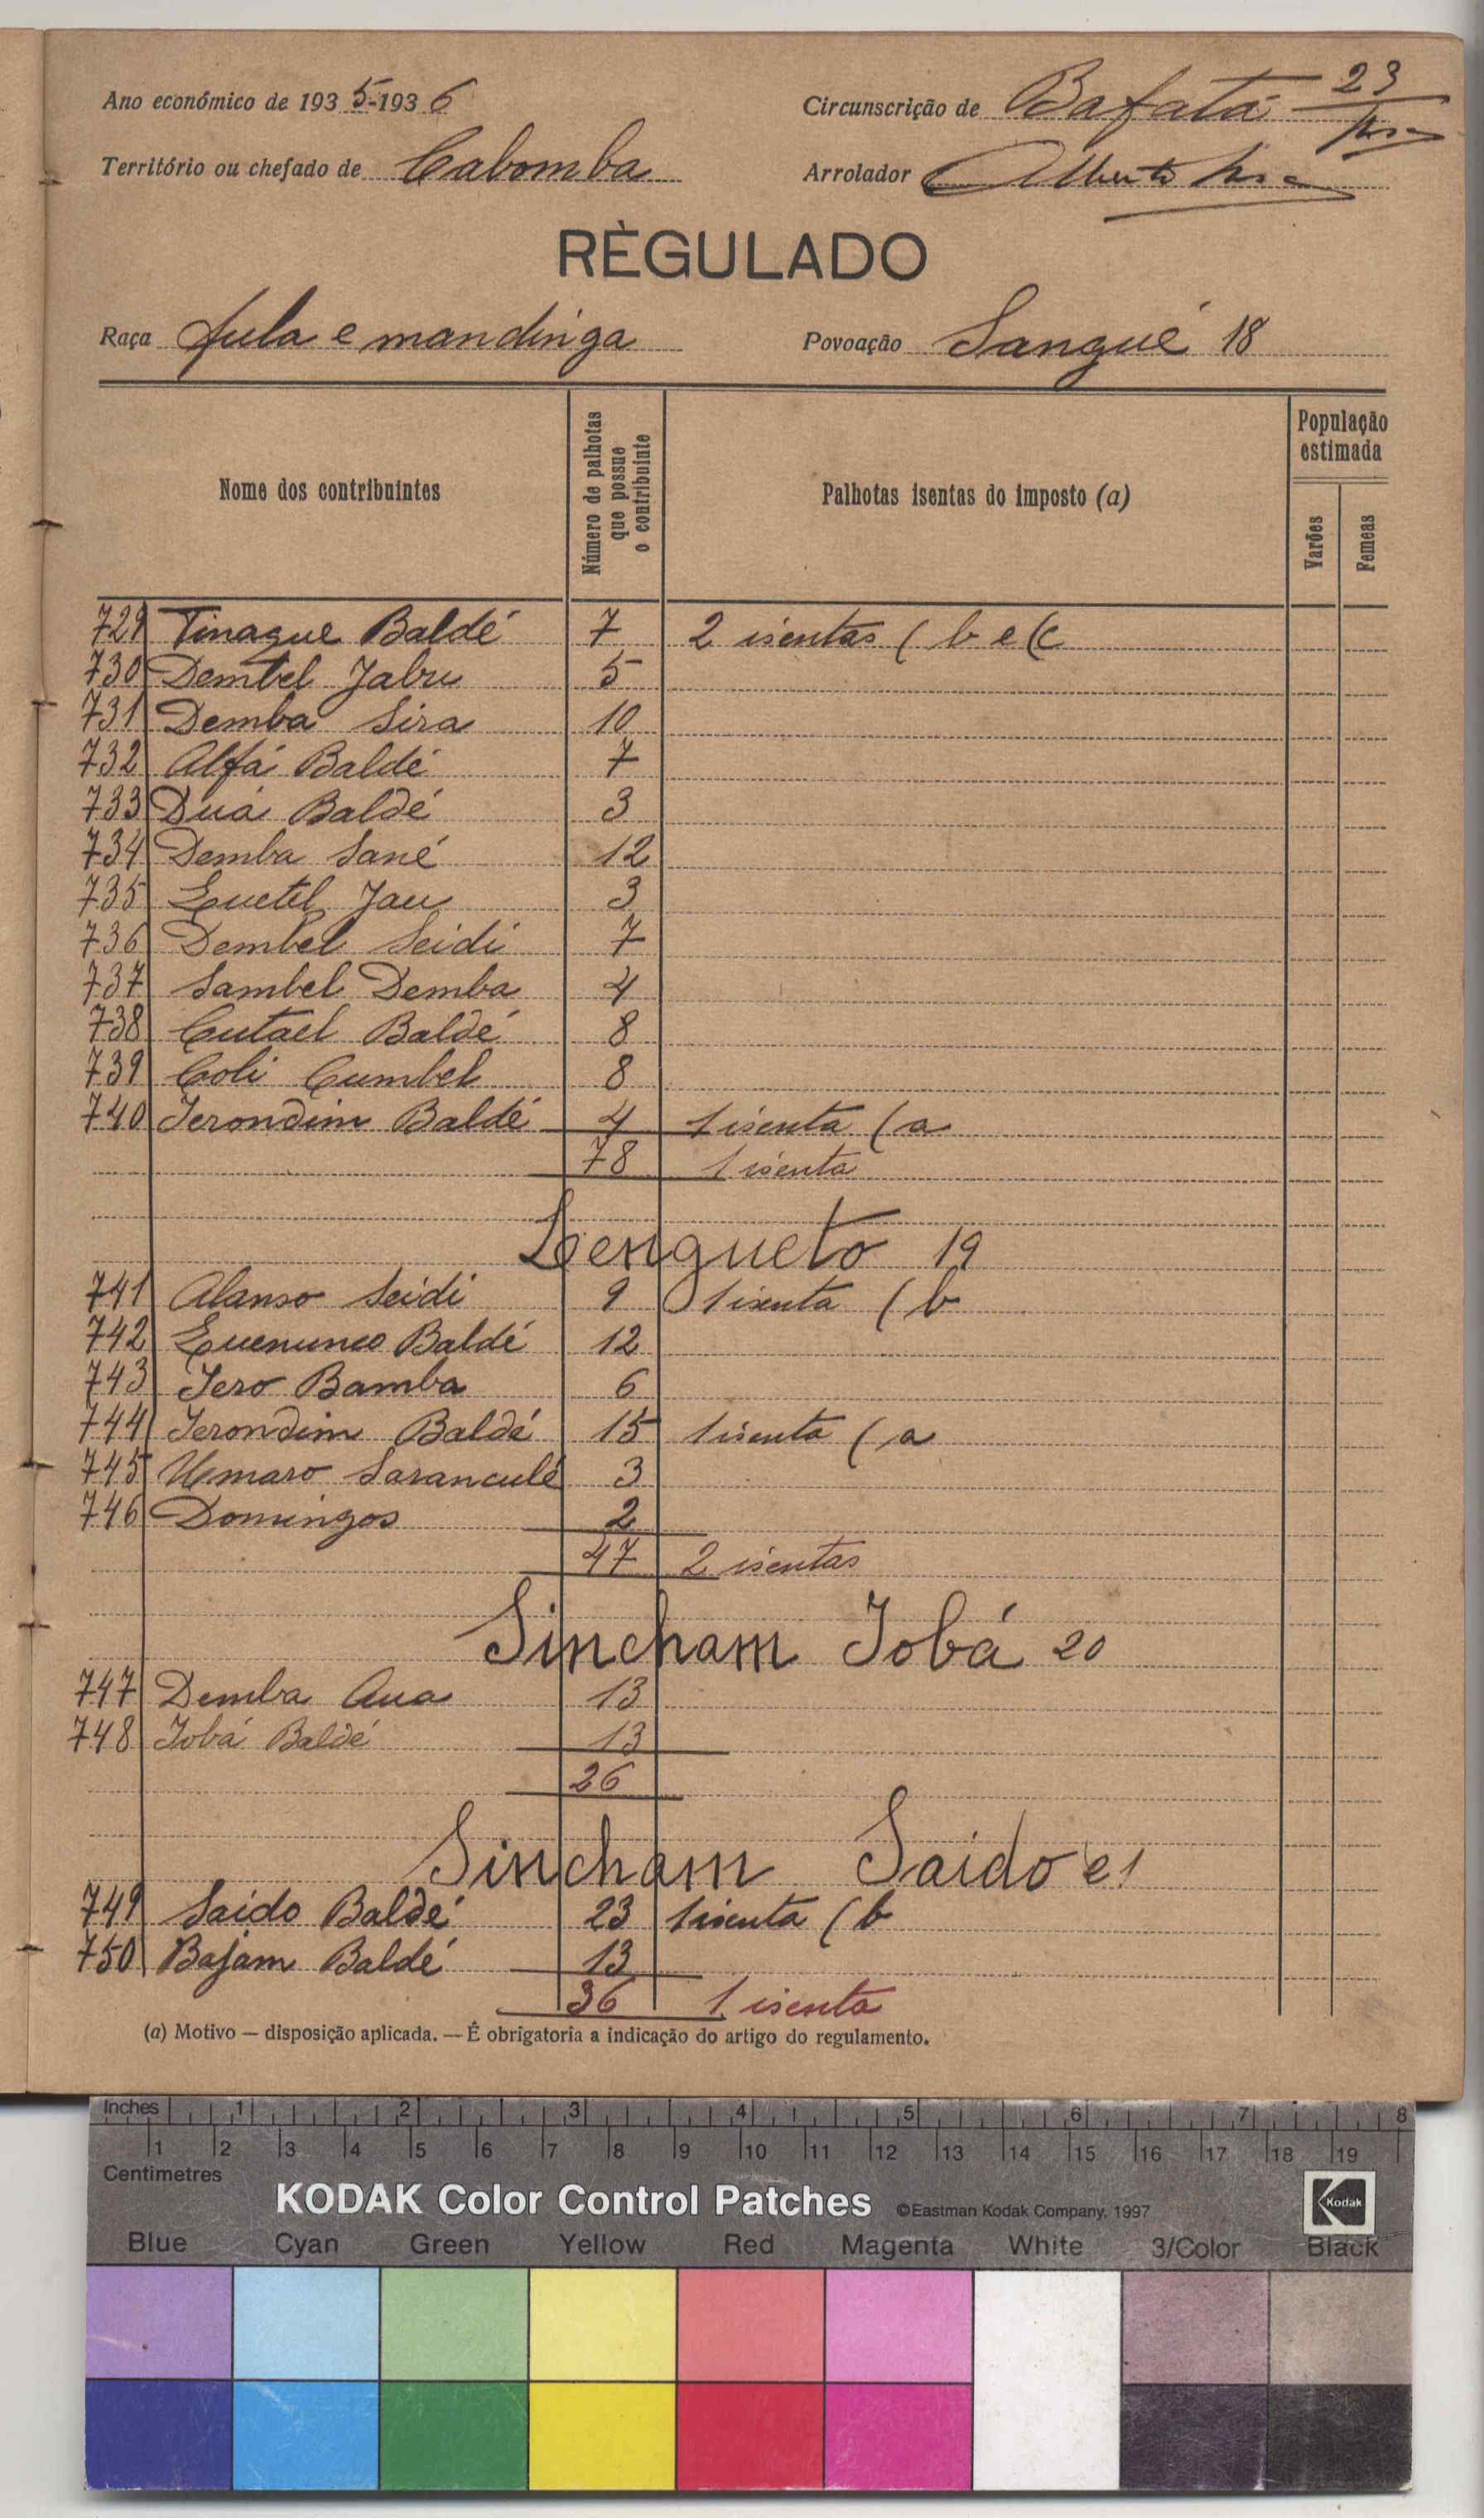 Ano económico de 1935-1936
Circunscrição de Bafatá 23
Território ou chefado de Cabomba
Arrolador Alberto
RÈGULADO
Raça fula e mandinga
Povoação Sangué 18
Nome dos contribuintes
Número de palhotas que possue o contribuinte
Palhotas isentas do imposto (a)
População estimada
Varões
Femeas
729 Tinague Baldé 7 2 isentas ( b e (c
730 Dembel Jabu 5
731 Demba Sira 10
732 Alfá Baldé 7
733 Duá Baldé 3
734 Demba Sané 12
735 Quetel Jau 3
736 Dembel Seidi 7
737 Sambel Demba 4
738 Cutael Baldé 8
739 Coli Cumbel 8
740 Jerondim Baldé 4 1 isenta ( a
78 1 isenta
Lengueto 19
741 Alanso Seidi 9 1 isenta ( b
742 Quenunco Baldé 12
743 Jero Bamba 6
744 Jerondim Baldé 15 1 isenta ( a
745 Umaro Saranculé 3
746 Domingos 2
47 2 isentas
Sincham Jobá 20
747 Demba Aua 13
748 Jobá Baldé 13
26
Sincham Saido 21
749 Saido Baldé 23 1 isenta ( b
750 Bajam Baldé 13
36 1 isenta
(a) Motivo — disposição aplicada. — É obrigatoria a indicação do artigo do regulamento.
Inches 1 2 3 4 5 6 7 8
1 2 3 4 5 6 7 8 9 10 11 12 13 14 15 16 17 18 19
Centimetres
KODAK Color Control Patches ©Eastman Kodak Company, 1997 Kodak
Blue Cyan Green Yellow Red Magenta White 3/Color Black